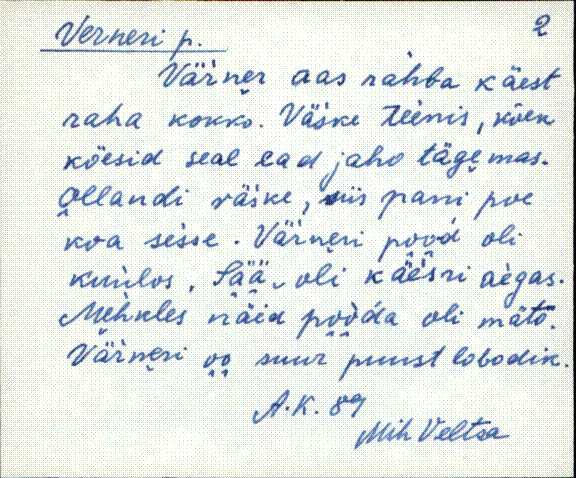 Verneri p.
2
Vär̀ner aas ràhba käest
raha kokko. Väske teenis, kõen
kõesid seal ead jaho tägemas.
Ollandi räske, siis pani poe
koa sesse. Vär̀neri pood oli
kuulos. Sää oli käesri aègas.
Mehkles näid poòda oli mäto.
Vär̀neri oo suur puust lobodik.
A.K. 89
Mih Veltsa